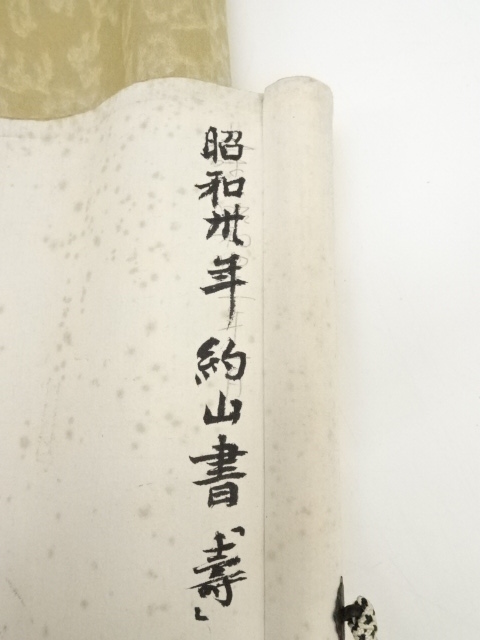 昭和卅年約山書「壽」